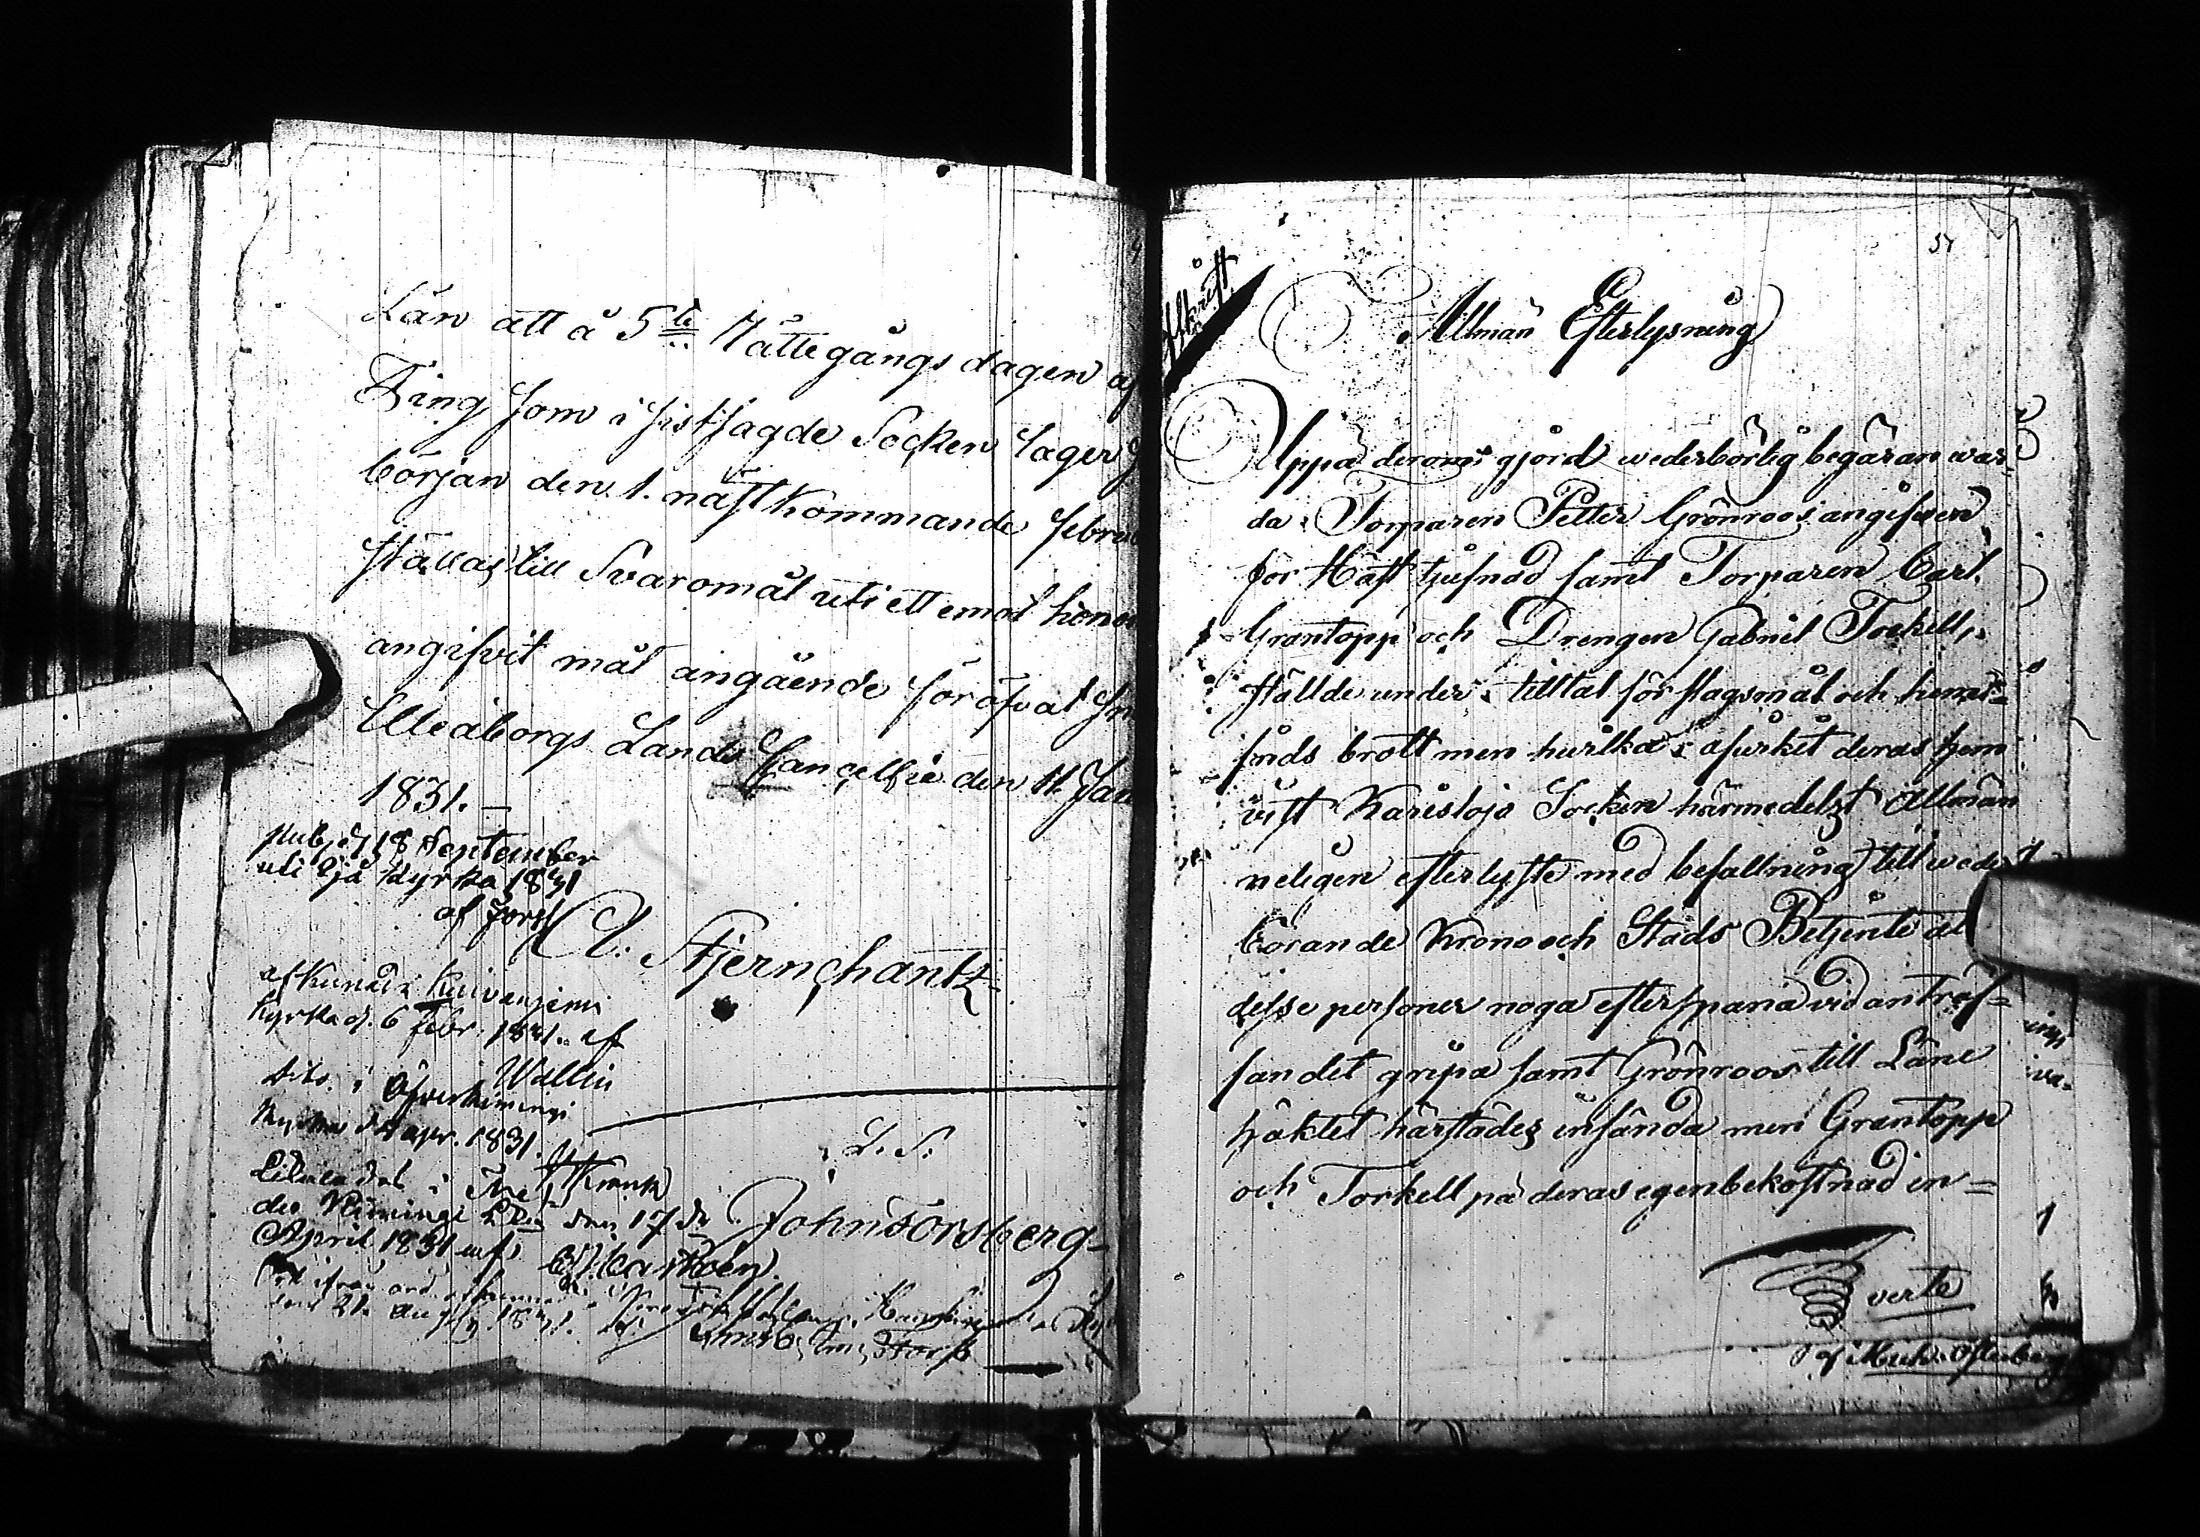 Län att å 5te Rättegångs dagen af
Ting som i sistsagde Socken tager s
början den 1. nästkommande Febru
ställas till Svaromål uti ett emot hono
angifvit mål angående föröfvat
Uleåborgs Lands Cancellie den 11 Jan
1831. —
publ. d. 18 September
uti Ijå Kyrka 1831
af Forss
A: Stjernschantz
afkunnad i Kuivaniemi
kyrka d. 6 febr. 1831. af
Wallin
dito i Öfverkiminge
kyrka d. apr. 1831.
L. S.
den 17de
April 1831 af
John Forsberg
den 21. Aug. 1831.
51
Afskrift
Allmän Efterlysning
Uppå derom gjord wederbörlig begäran war-
da Torparen Petter Grönroos angifven
för Häst tjufnad samt Torparen Carl
Grantopp och Drengen Gabriel Torkell,
ställde under tilltal för slagsmål och hemer-
frids brott men hwilka afwikit deras hem
vist Karislojo Socken härmedelst Allmän
neligen efterlyste med befallning till weder
börande Krono och Stads Betjente at
desse personer noga efterspana vid anträf-
fandet gripa samt Grönroos till Läne
häktet härstädes insända men Grantopp
och Torkell på deras egen bekostnad in-
verte